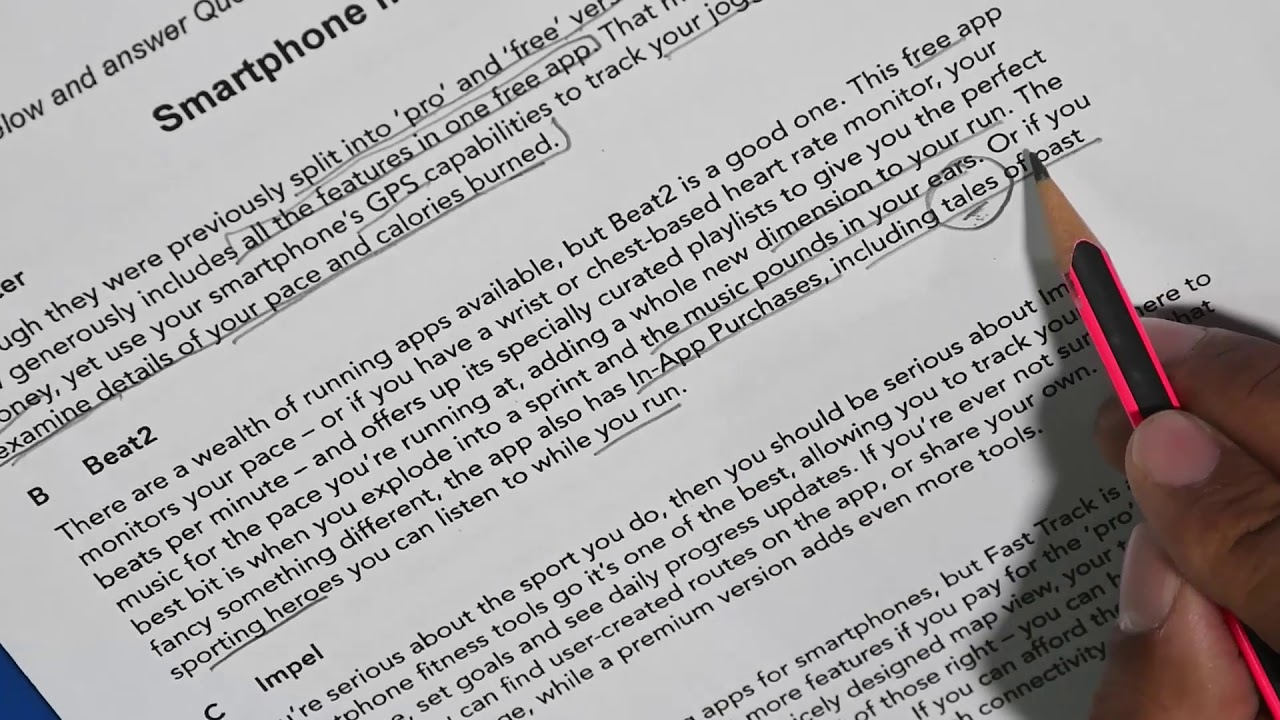 below and answer Que
Smartphone
ugh they were previously split into 'pro' and 'free'
generously includes all the features in one free app. That
oney, yet use your smartphone's GPS capabilities to track your
examine details of your pace and calories burned.
B Beat2
There are a wealth of running apps available, but Beat2 is a good one. This free app
monitors your pace – or if you have a wrist or chest-based heart rate monitor, your
beats per minute – and offers up its specially curated playlists to give you the perfect
music for the pace you're running at, adding a whole new dimension to your run. The
best bit is when you explode into a sprint and the music pounds in your ears. Or if you
fancy something different, the app also has In-App Purchases, including tales of past
sporting heroes you can listen to while you run.
C Impel
're serious about the sport you do, then you should be serious about
fitness tools go it's one of the best, allowing you to track your here to
, set goals and see daily progress updates. If you're ever not that
can find user-created routes on the app, or share your own.
, while a premium version adds even more tools.
apps for smartphones, but Fast Track is
more features if you pay for the 'pro'
designed map view, your
of those right – you can
If you can afford the
connectivity